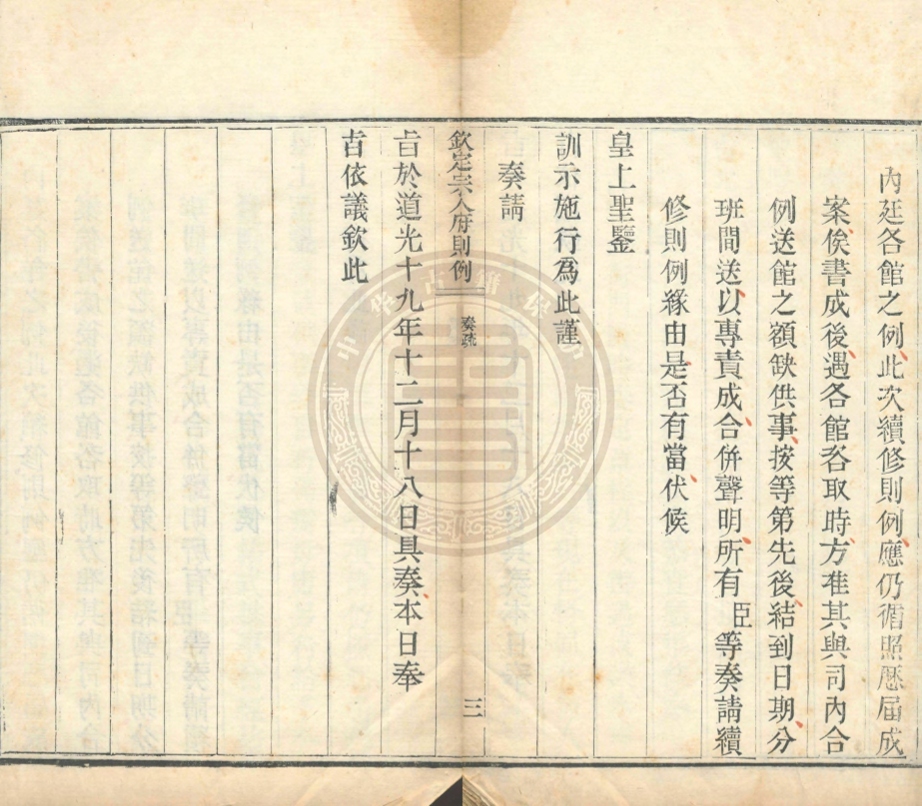 內廷各館之例此次續修則例應仍循照歷屆成
案俟書成後遇各館咨取時方准其與司內合
例送館之額缺供事按等第先後結到日期分
班間送以專責成合併聲明所有臣等奏請續
修則例緣由是否有當伏候
皇上聖鑒
訓示施行為此謹
奏請
欽定宗人府則例 奏疏 三
旨於道光十九年十二月十八日具奏本日奉
旨依議欽此